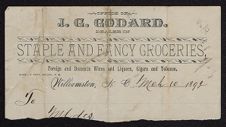 OFFICE OF
J. G. GODARD,
DEALER IN
STAPLE AND FANCY GROCERIES,
Foreign and Domestic Wines and Liquors, Cigars and Tobacco.
Williamston, N. C. Mch 10 1892
To